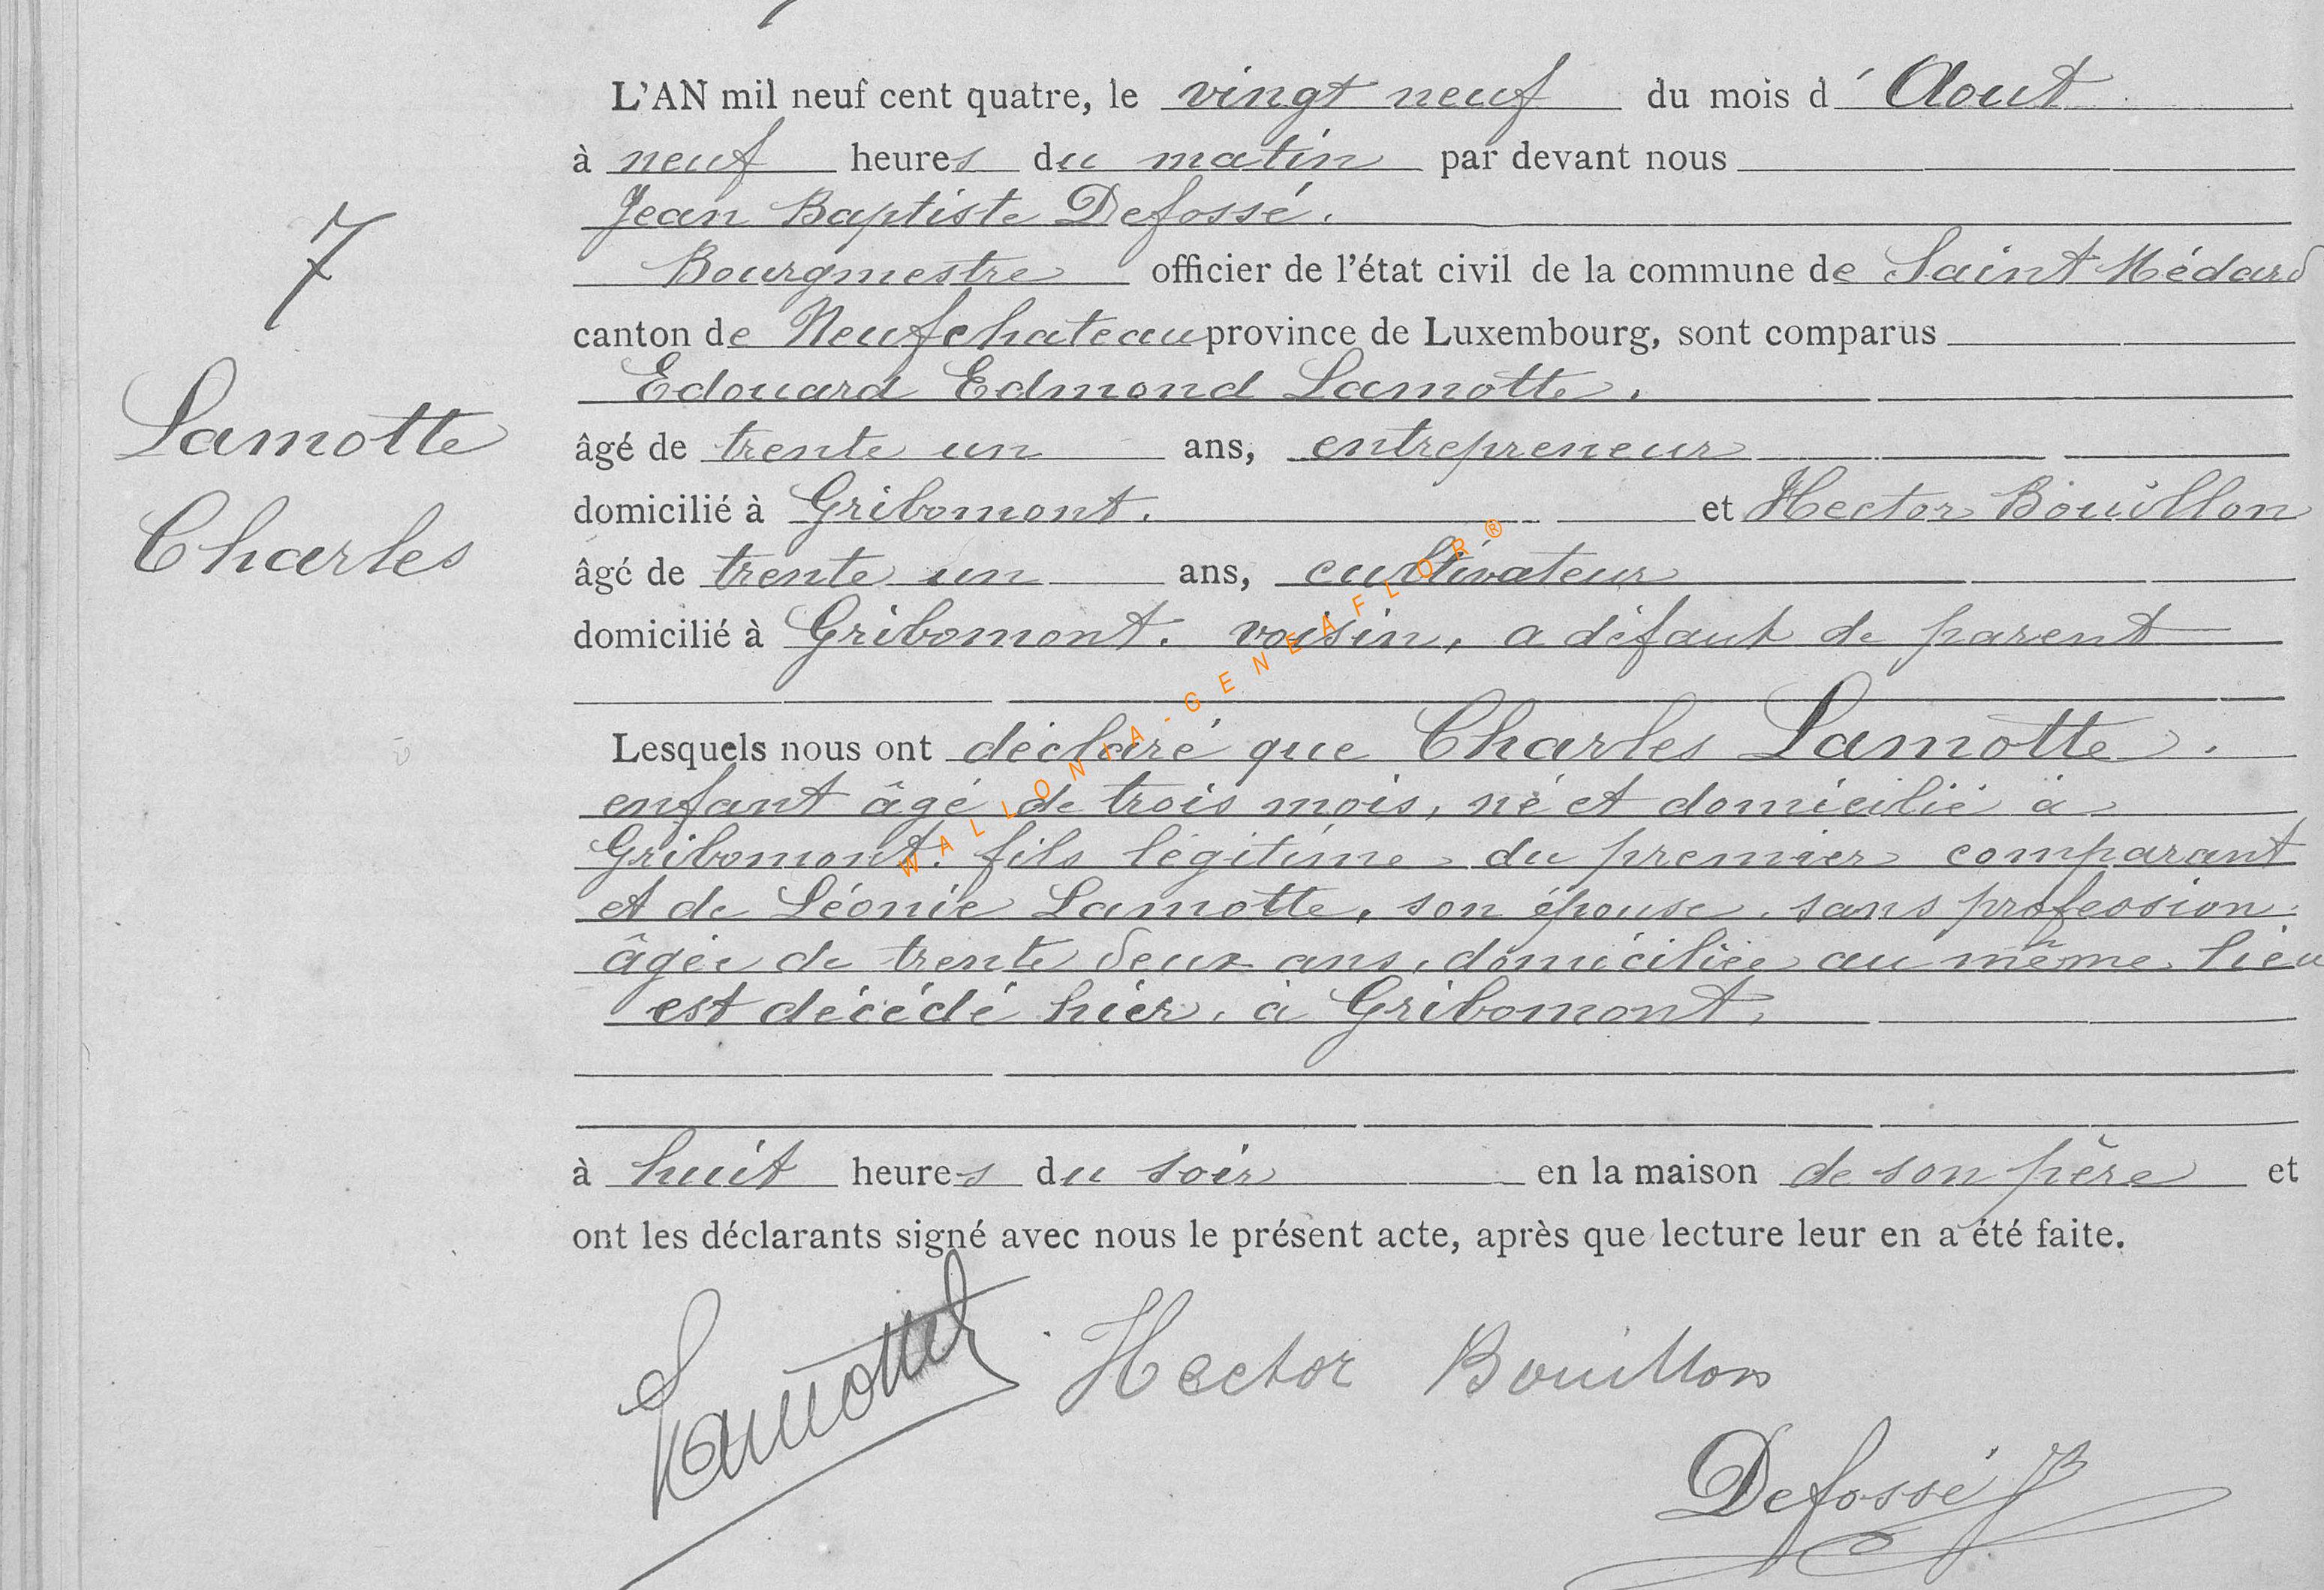 L'AN mil neuf cent quatre, le vingt neuf du mois d' Aout
à neuf heures du matin par devant nous
Jean Baptiste Defossé.
Bourgmestre officier de l'état civil de la commune de Saint Médard
canton de Neufchateau province de Luxembourg, sont comparus
Edouard Edmond Lamotte.
âgé de trente un ans, entrepreneur
domicilié à Gribomont. et Hector Bouillon
âgé de trente un ans, cultivateur
domicilié à Gribomont. voisin, a défaut de parent
7
Lamotte
Charles
Lesquels nous ont déclaré que Charles Lamotte.
enfant âgé de trois mois, né et domicilié à
Gribomont. fils légitime du premier comparant
et de Léonie Lamotte, son épouse, sans profession.
âgée de trente deux ans, domiciliée au même lieu
est décédé hier, à Gribomont,
à huit heures du soir en la maison de son père et
ont les déclarants signé avec nous le présent acte, après que lecture leur en a été faite.
Lamotte Hector Bouillon
Defossé JB
WALLONIA-GENEAFLOR®